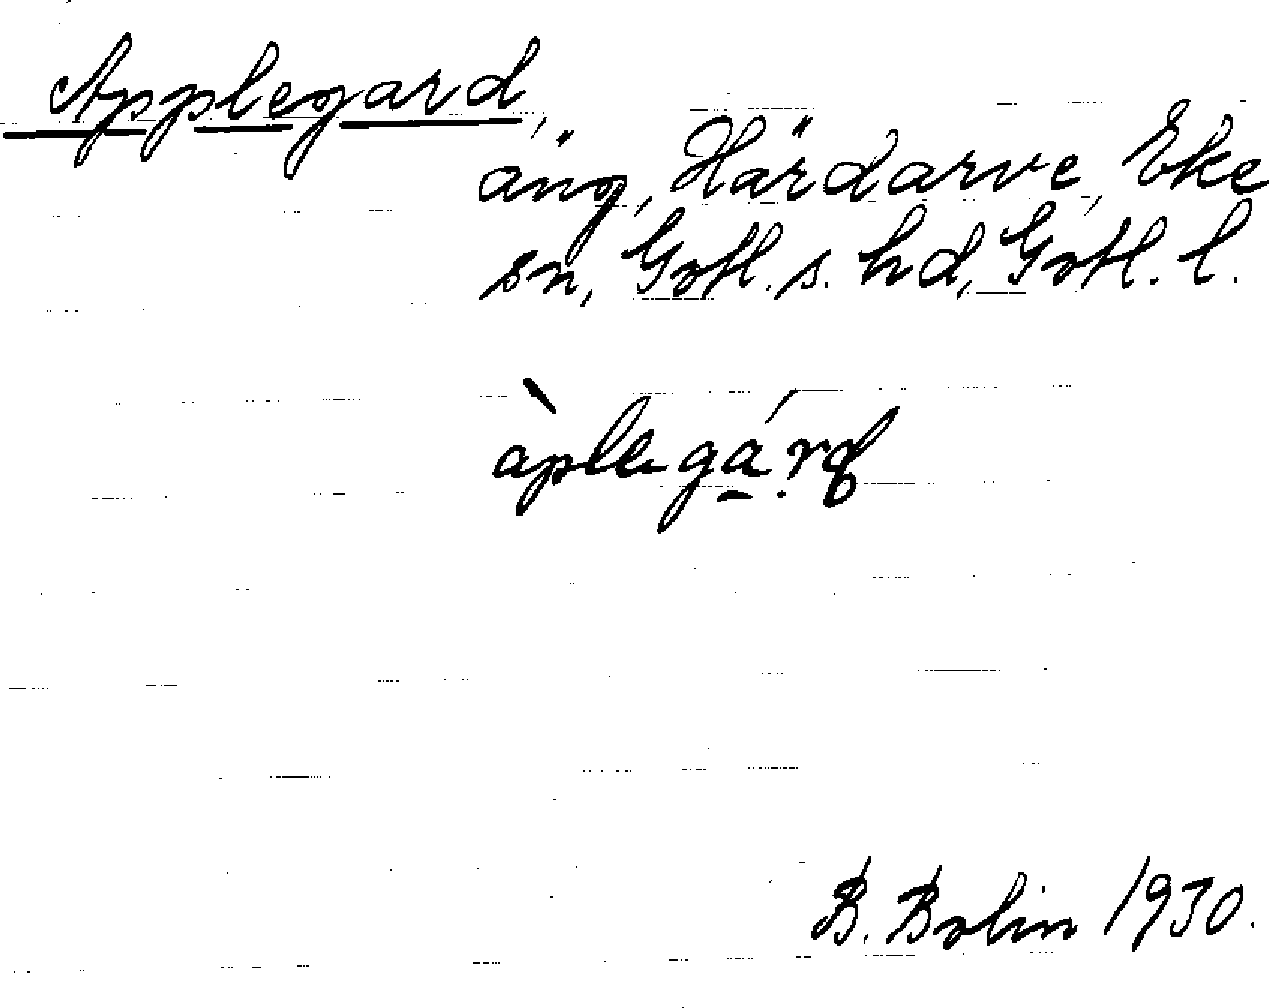 Applegard,
äng, Härdarve, Eke
sn, Gotl. s. hd, Gotl. l.
àplegá̱rd
B. Bolin 1930.